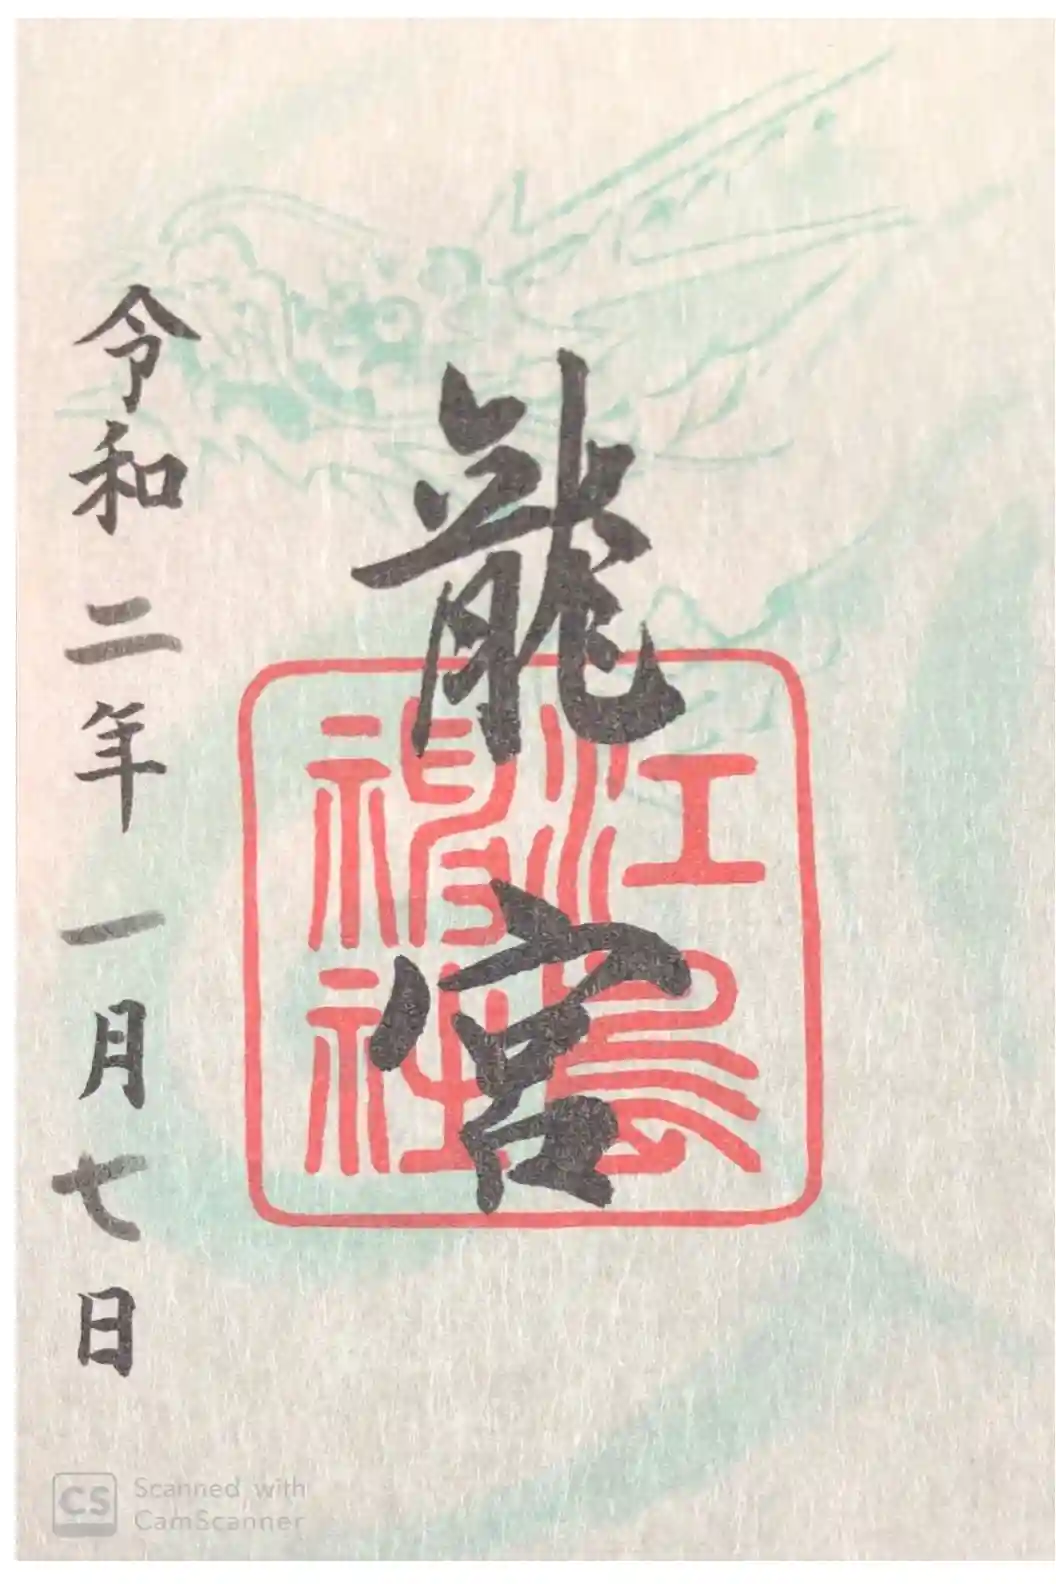 龍宮
江島神社
令和二年一月七日
Scanned with
CamScanner
CS